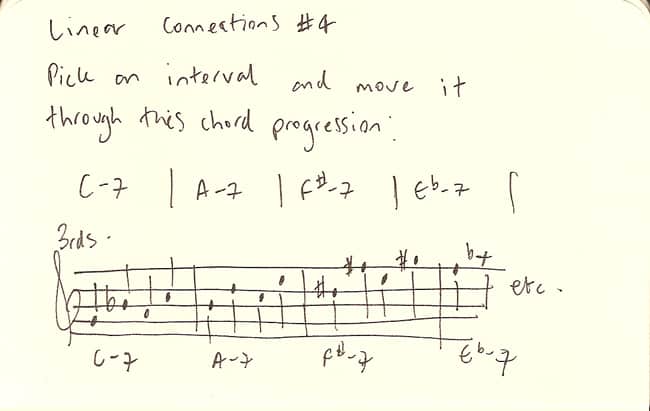 Linear Connections #4
Pick an interval and move it
through this chord progression:
C-7 | A-7 | F#-7 | Eb-7 |
3rds.
etc.
C-7 A-7 F#-7 Eb-7